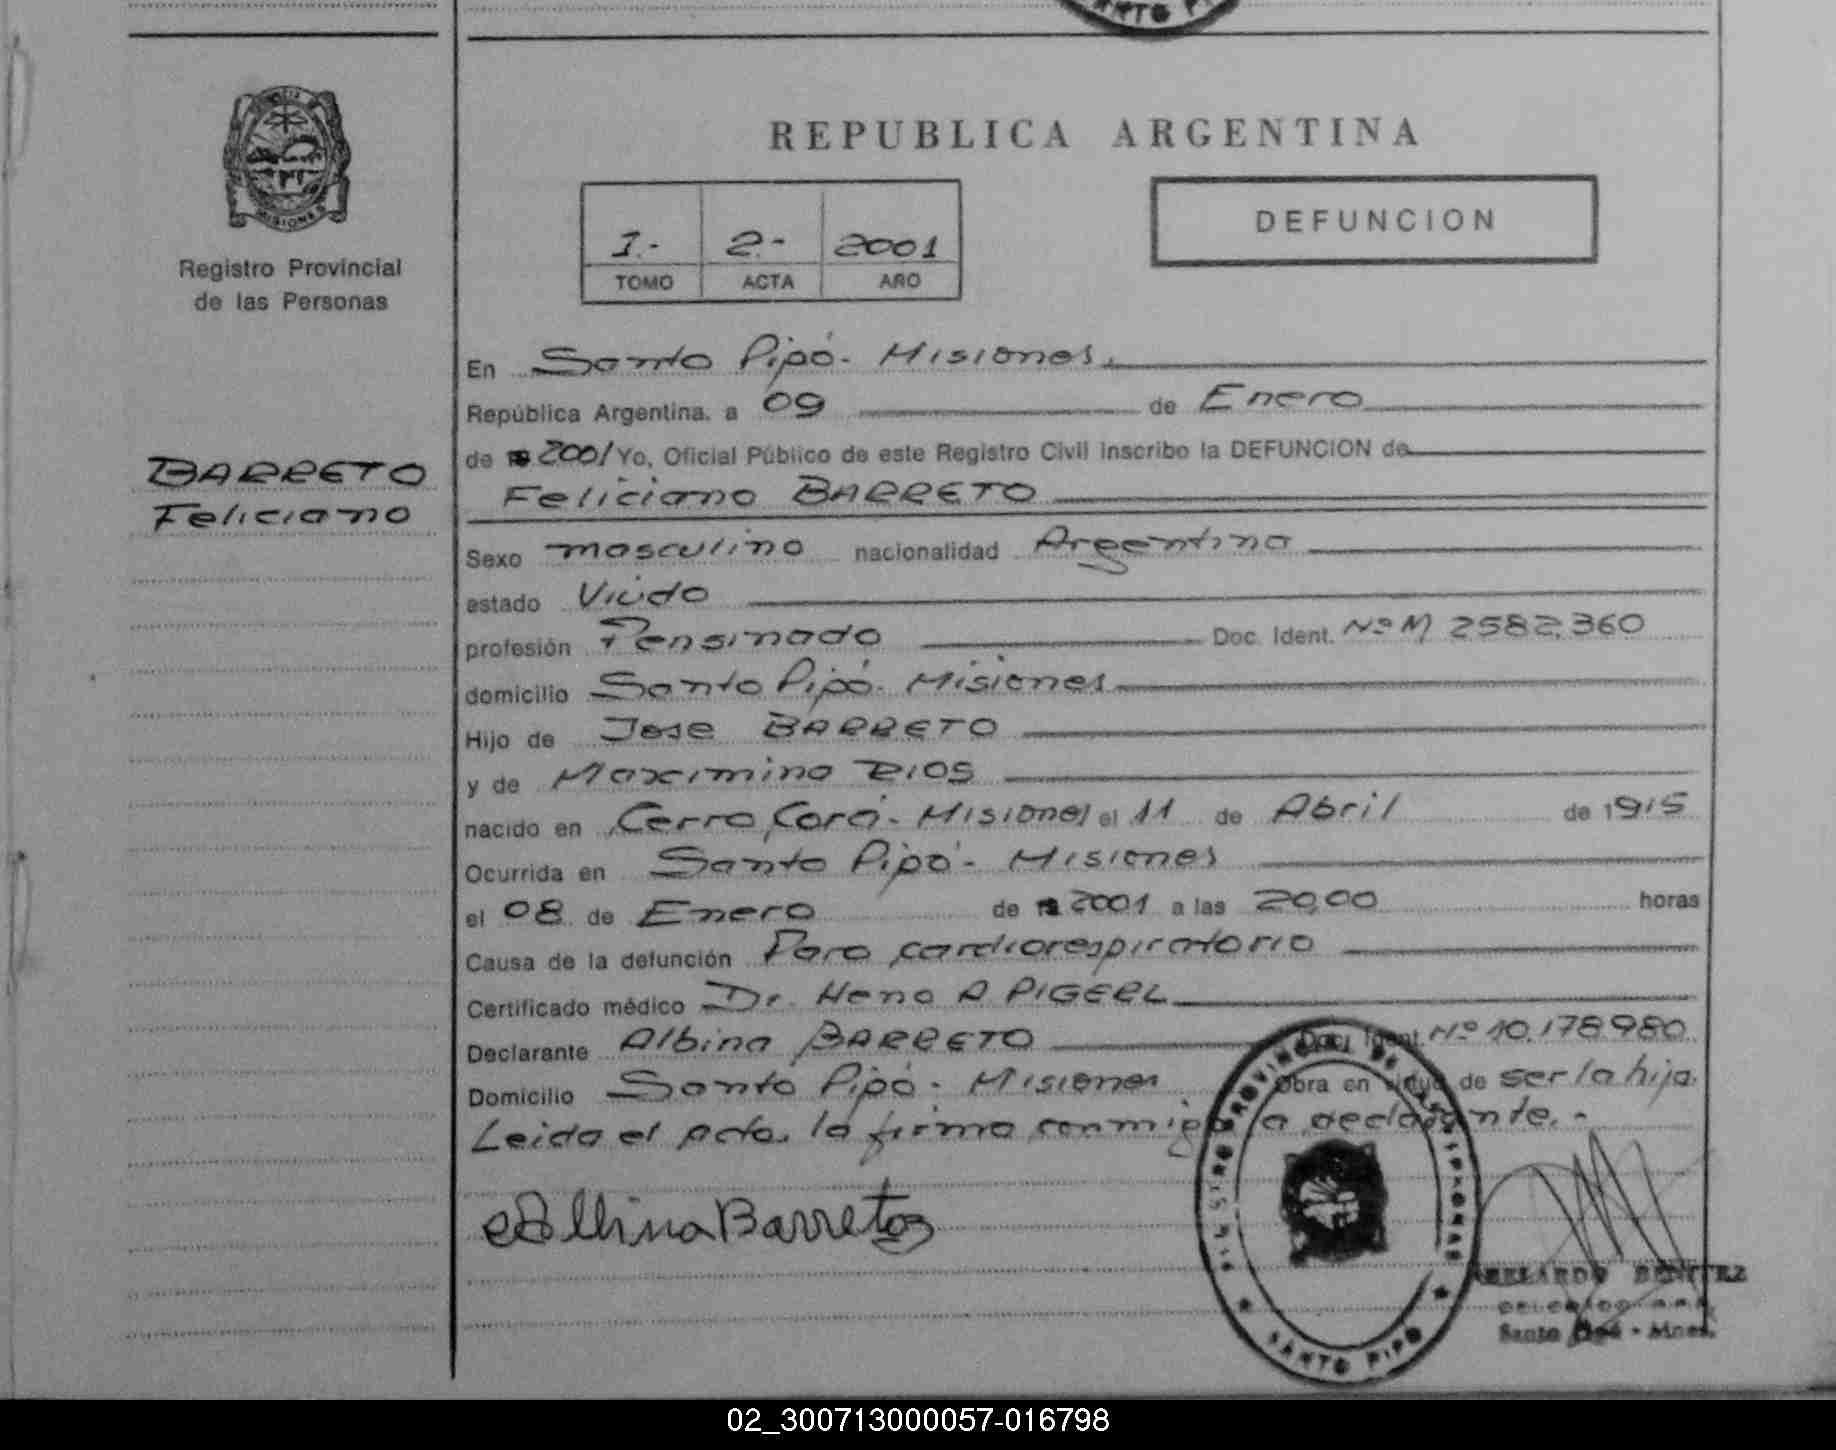 SANTO PI
REPUBLICA ARGENTINA
1.- 2.- 2001
TOMO ACTA AÑO
DEFUNCION
MISIONES
Registro Provincial
de las Personas
BARRETO
Feliciano
En Santo Pipó - Misiones.
República Argentina, a 09 de Enero
de 2001 Yo, Oficial Público de este Registro Civil inscribo la DEFUNCION de
Feliciano BARRETO
Sexo masculino nacionalidad Argentina
estado Viudo
profesión Pensinado Doc. Ident. Nº M 2582.360
domicilio Santo Pipó - Misiones
Hijo de Jose BARRETO
y de Maximina RIOS
nacido en Cerro Corá - Misiones el 11 de Abril de 1915
Ocurrida en Santo Pipó - Misiones
el 08 de Enero de 2001 a las 20,00 horas
Causa de la defunción Paro cardiorespiratorio
Certificado médico Dr. A PIGERL
Declarante Albina BARRETO Doc. Ident. Nº 10.178.980
Domicilio Santo Pipó - Misiones Obra en virtud de ser la hija.
Leida el acta, la firma conmigo la declarante. -
Albina Barreto
REGISTRO PROVINCIAL DE LAS PERSONAS
SANTO PIPO
ABELARDO BENITEZ
Santo Pipó - Mnes.
02_300713000057-016798